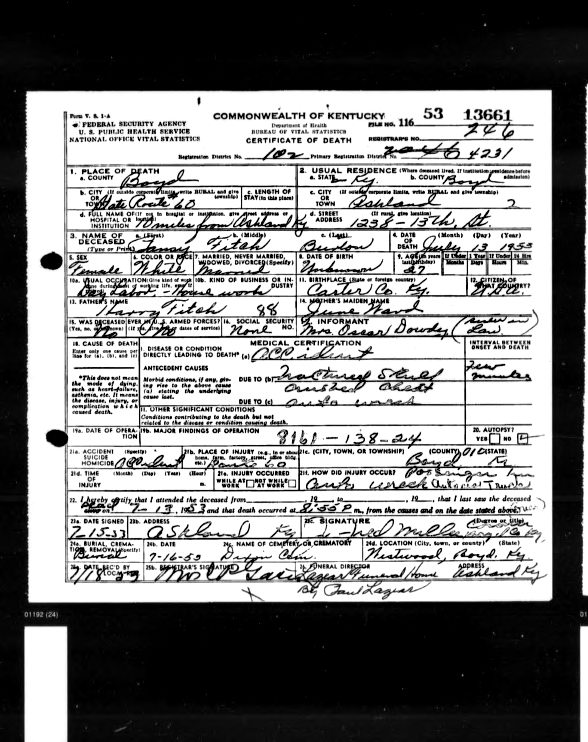 Form V. S. 1-A
FEDERAL SECURITY AGENCY
U. S. PUBLIC HEALTH SERVICE
NATIONAL OFFICE VITAL STATISTICS
COMMONWEALTH OF KENTUCKY
Department of Health
BUREAU OF VITAL STATISTICS
CERTIFICATE OF DEATH
FILE NO. 116 53 13661
REGISTRAR'S NO. 246
Registration District No. 102 Primary Registration District No. 4231
1. PLACE OF DEATH
a. COUNTY Boyd
b. CITY (If outside corporate limits, write RURAL and give township)
OR TOWN State Route # 60
c. LENGTH OF STAY (in this place)
d. FULL NAME OF (If not in hospital or institution, give street address or location)
HOSPITAL OR INSTITUTION 10 miles from Ashland Ky
2. USUAL RESIDENCE (Where deceased lived. If institution: residence before admission)
a. STATE Ky. b. COUNTY Boyd
c. CITY (If outside corporate limits, write RURAL and give township)
OR TOWN Ashland 2
d. STREET ADDRESS (If rural, give location)
1238 - 13th St
3. NAME OF DECEASED (Type or Print)
a. (First) b. (Middle) Fitch c. (Last) Burton
4. DATE OF DEATH (Month) (Day) (Year)
July 13 1953
5. SEX Female
6. COLOR OR RACE White
7. MARRIED, NEVER MARRIED, WIDOWED, DIVORCED (Specify) Married
8. DATE OF BIRTH Unknown
9. AGE (In years last birthday) 27
If Under 1 Year Months Days If Under 24 Hrs Hours Min.
10a. USUAL OCCUPATION (Give kind of work done during most of working life, even if retired)
Day Labor - House work
10b. KIND OF BUSINESS OR INDUSTRY
11. BIRTHPLACE (State or foreign country) Carter Co. Ky.
12. CITIZEN OF WHAT COUNTRY? U.S.A.
13. FATHER'S NAME Harry Fitch 88
14. MOTHER'S MAIDEN NAME June Ward
15. WAS DECEASED EVER IN U. S. ARMED FORCES?
(Yes, no, or unknown) (If yes, give war or dates of service)
No
16. SOCIAL SECURITY NO. None
17. INFORMANT Mrs Oscar Dowdy (Sister in Law)
18. CAUSE OF DEATH
Enter only one cause per line for (a), (b), and (c)
MEDICAL CERTIFICATION
INTERVAL BETWEEN ONSET AND DEATH
I. DISEASE OR CONDITION DIRECTLY LEADING TO DEATH* (a) Accident
*This does not mean the mode of dying, such as heart failure, asthenia, etc. It means the disease, injury, or complication which caused death.
ANTECEDENT CAUSES
Morbid conditions, if any, giving rise to the above cause (a) stating the underlying cause last.
DUE TO (b) Fractured Skull
Crushed Chest
few minutes
DUE TO (c) auto wreck
II. OTHER SIGNIFICANT CONDITIONS
Conditions contributing to the death but not related to the disease or condition causing death.
19a. DATE OF OPERATION
19b. MAJOR FINDINGS OF OPERATION
8161 - 138 - 24
20. AUTOPSY? YES NO
21a. ACCIDENT SUICIDE HOMICIDE (Specify) Accident
21b. PLACE OF INJURY (e.g., in or about home, farm, factory, street, office bldg., etc.) Route 60
21c. (CITY, TOWN, OR TOWNSHIP) (COUNTY) (STATE)
Boyd Ky
21d. TIME OF INJURY (Month) (Day) (Year) (Hour)
21e. INJURY OCCURRED
WHILE AT WORK NOT WHILE AT WORK
21f. HOW DID INJURY OCCUR?
Auto wreck
22. I hereby certify that I attended the deceased from 19 to 19 , that I last saw the deceased
7 - 13, 1953 and that death occurred at 8:55 P m., from the causes and on the date stated above.
23a. DATE SIGNED 7-15-53
23b. ADDRESS Ashland Ky
23c. SIGNATURE (Degree or title)
24a. BURIAL, CREMATION, REMOVAL (Specify) Burial
24b. DATE 7-16-53
24c. NAME OF CEMETERY OR CREMATORY
24d. LOCATION (City, town, or county) (State)
Westwood, Boyd, Ky
25a. DATE REC'D BY LOCAL REG. 7/18/53
25b. REGISTRAR'S SIGNATURE
26. FUNERAL DIRECTOR ADDRESS
Lazear Funeral Home Ashland Ky
By Paul Lazear
01192 (24)